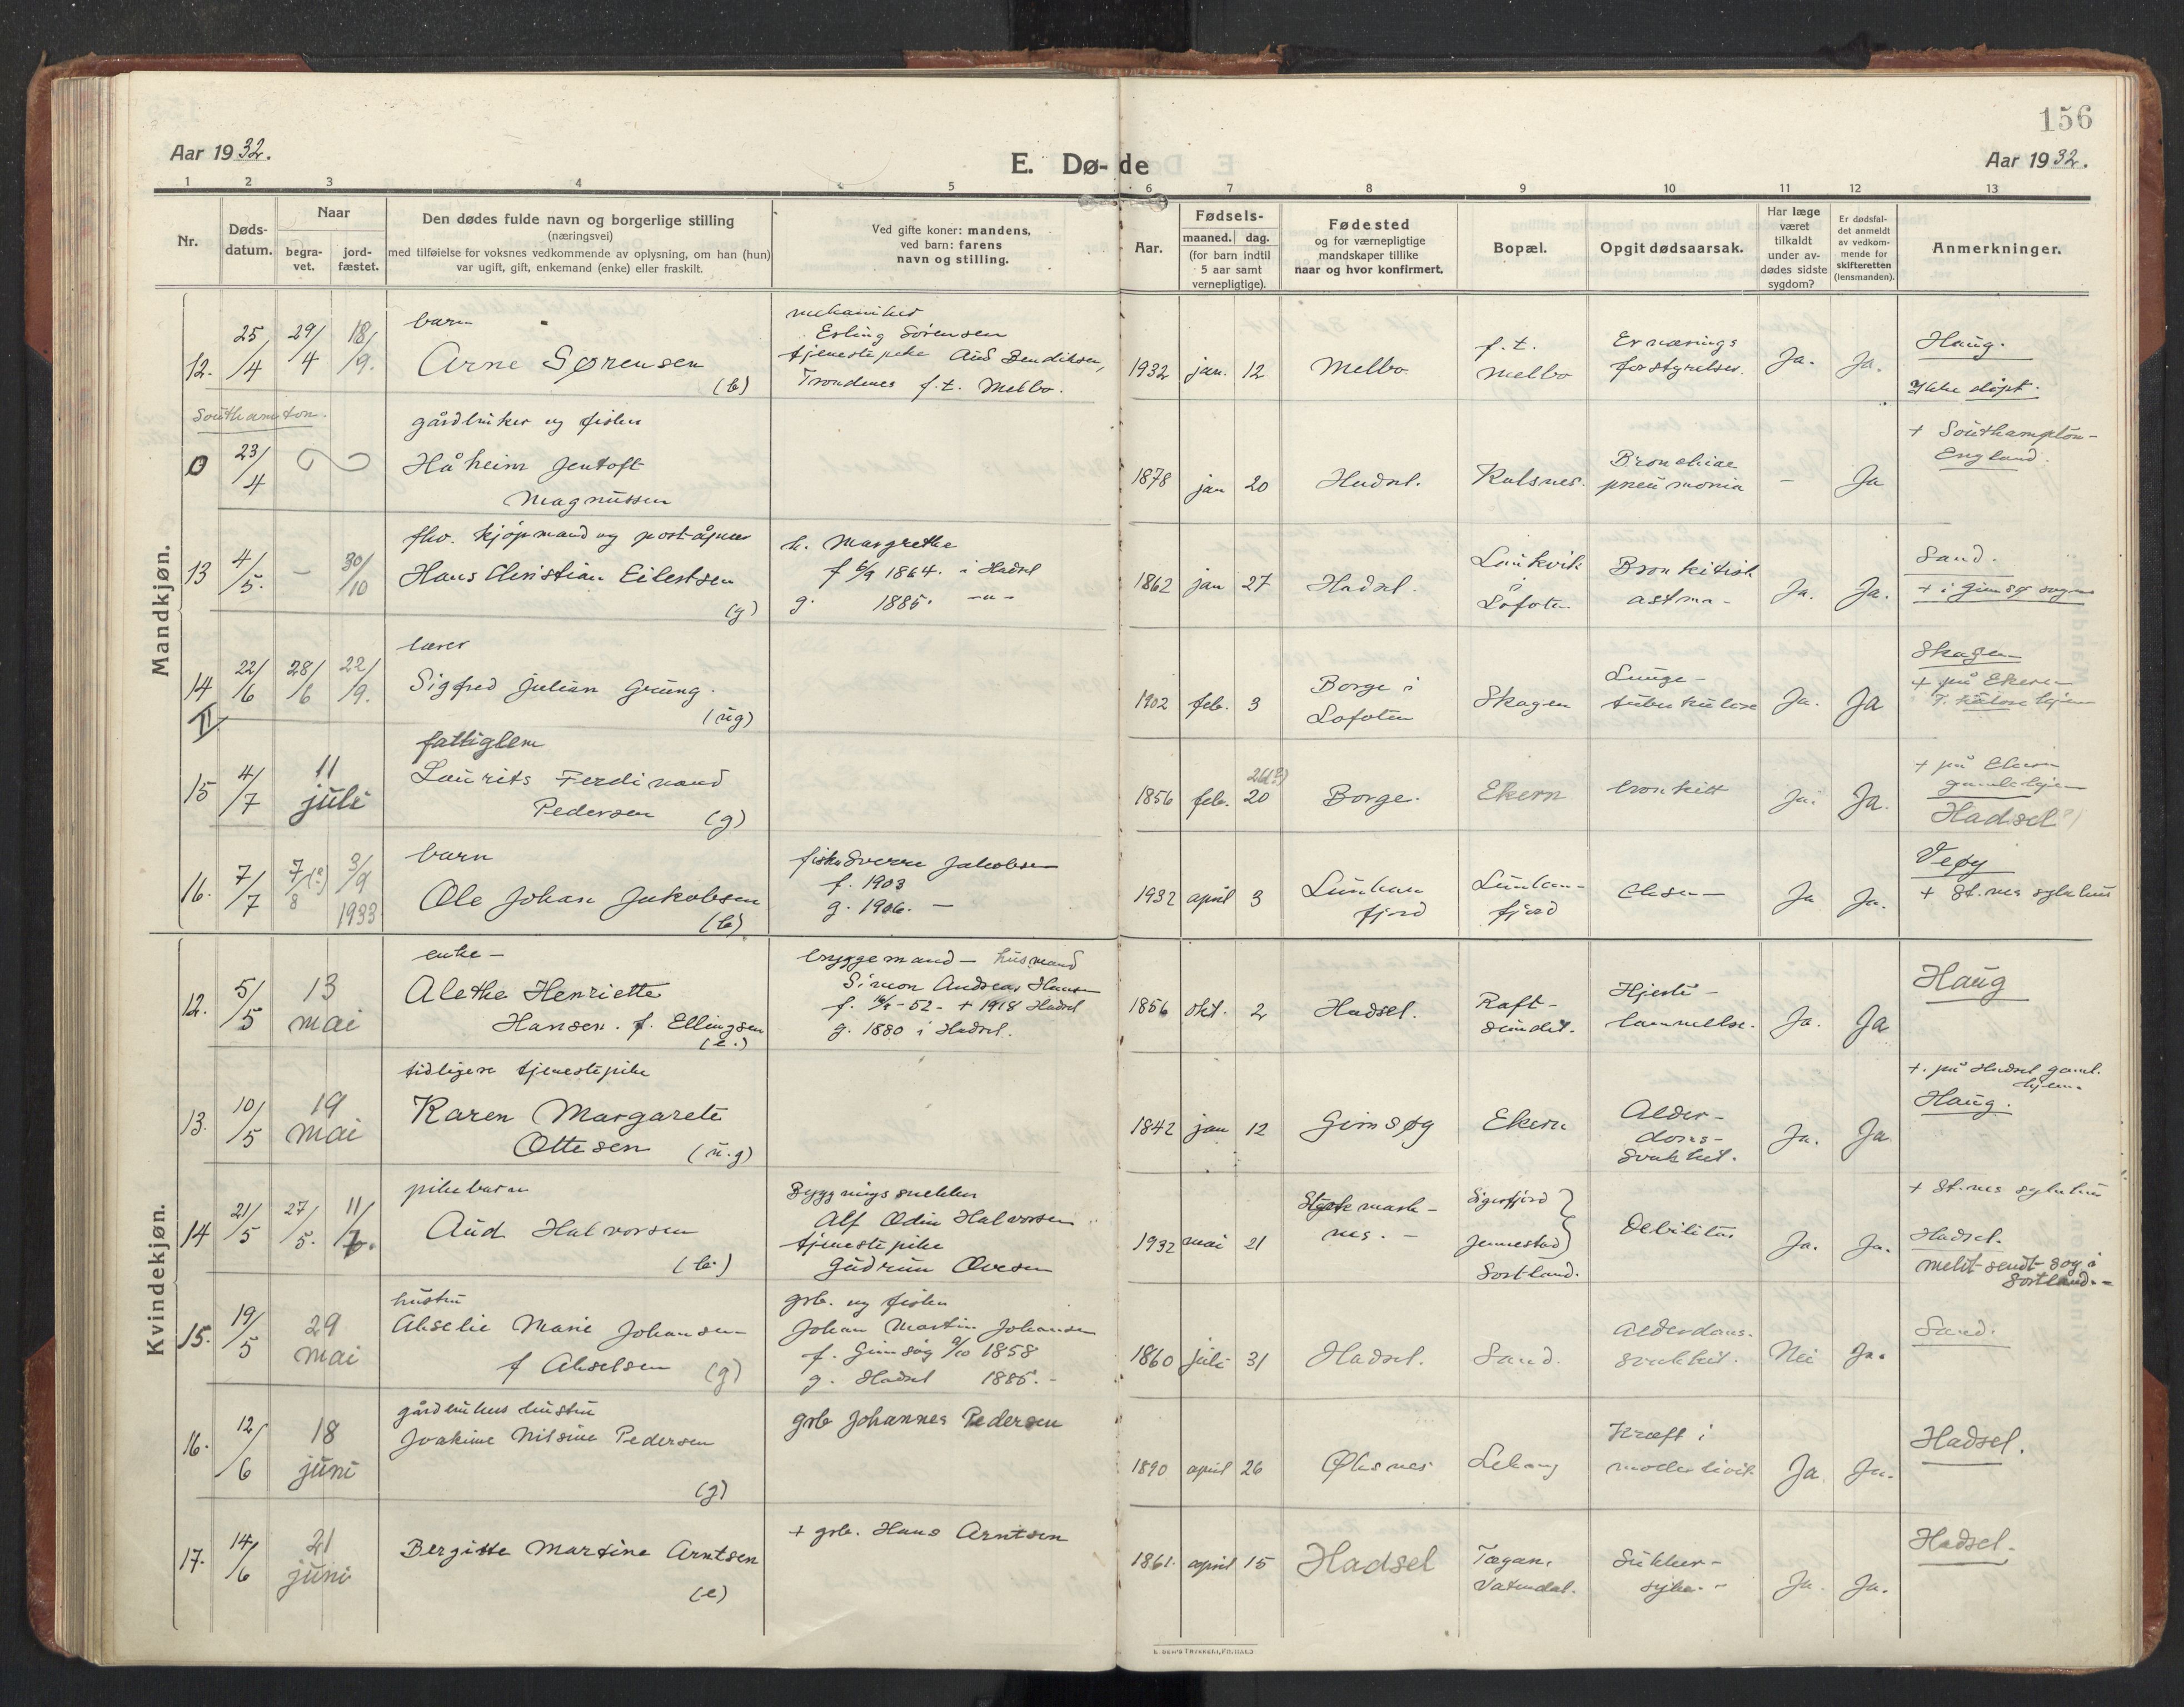 156
Aar 1932.
E. Dø- de
Aar 1932.
1 2 3 4 5 6 7 8 9 10 11 12 13
Nr.
Døds-
datum.
Naar
begra-
vet.
jord-
fæstet.
Den dødes fulde navn og borgerlige stilling
(næringsvei)
med tilføielse for voksnes vedkommende av oplysning, om han (hun)
var ugift, gift, enkemand (enke) eller fraskilt.
Ved gifte koner: mandens,
ved barn: farens
navn og stilling.
Aar.
Fødsels-
maaned. dag.
(for barn indtil
5 aar samt
vernepligtige).
Fødested
og for værnepligtige
mandskaper tillike
naar og hvor konfirmert.
Bopæl.
Opgit dødsaarsak.
Har læge
været
tilkaldt
under av-
dødes sidste
sygdom?
Er dødsfal-
det anmeldt
av vedkom-
mende for
skifteretten
(lensmanden).
Anmerkninger.
Mandkjøn.
12. 25/4 29/4 18/9.
barn
Arne Sørensen
(b)
mekaniker
Erling Sørensen
tjenestepike Aud Bendiksen,
Trondenes f.t. Melbo.
1932 jan. 12 Melbo
f.t.
Melbo
Ernærings
forstyrelser.
Ja. Ja.
Haug.
Ikke døpt.
Southamton.
0 23/4
gårdbruker og fisker
Håheim Jentoft
Magnussen
1878 jan 20 Hadsel.
Bronchiae
pneumonia
- Ja
+ Southampton-
England.
13 4/5. - 30/10
fhv. kjøpmand og poståpner
Hans Christian Eilertsen
(g)
h. Margrethe
f 6/9 1864. i Hadsel
g. 1885. -"-
1862 jan 27 Hadsel.
Laukvik
i
Lofoten
Bronkitisk
astma-
Ja. Ja.
Sand.
+ i Gimsø sogn
14 22/6 28/6 22/9.
lærer
Sigfred Julian Grung.
(ug)
1902 feb. 3
Borge i
Lofoten
Skagen
Lunge-
tuberkulose
Ja. Ja
Skagen
+ på Ekern
15 4/7 11
juli
fattiglem
Laurits Ferdinand
Pedersen (g)
1856 feb. 20 Borge. Ekern bronkitt Ja. Ja.
+ på Ekern
gamlehjem
Hadsel
16. 7/7 7/8(?) 3/9
1933
barn
Ole Johan Jakobsen
(b)
fisker Sverre Jakobsen
f. 1903
g. 1906. -
1932 april 3
Lunkan
fjord
Lunkan-
fjord
Ja Ja.
Veøy
+ St.nes sykehus
Kvindekjøn.
12. 5/5 13
mai
enke -
Alethe Henriette
Hansen. f. Ellingsen
(e.)
bryggemand - husmand
Simon Andreas Hansen
+ 1918 Hadsel
g. 1880 i Hadsel.
1856 okt. 2 Hadsel.
Raft-
sundet.
Hjerte-
lammelse.
Ja. Ja
Haug
13. 10/5 19
mai
tidligere tjenestepike
Karen Margarete
Ottesen (u.g)
1842 jan 12 Gimsøy Ekern
Alder-
doms-
svakhet.
Ja. Ja
+. på Hadsel gaml.
hjem.
Haug.
14 21/5 27/5. 11/7.
pikebarn
Aud Halvorsen
(b.)
Bygningssnekker
Alf Odin Halvorsen
tjenestepike
Gudrun Ovesen
1932 mai 21
Stokmark-
nes. -
Sigerfjord
Jennestad
Sortland.
Debilitas
Ja. Ja.
+ St.nes sykehus
Hadsel.
meld. sendt sog i
Sortland.-
15. 19/5 29
mai
hustru
Akselie Marie Johansen
f Akselsen (g)
grb. og fisker
Johan Martin Johansen
f. Gimsøy 9/10 1858
g. Hadsel 1885.-
1860 juli 31 Hadsel. Sand.
Alderdoms.
svakhet.
Nei Ja.
Sand.
16. 12/6 18
juni
gårdbrukers hustru
Joakime Nilsine Pedersen
(g)
grb Johannes Pedersen
1890 april 26 Øksnes
Kræft i
moderlivit
Ja Ja.
Hadsel.
17. 14/6 21
juni
Bergitte Martine Arntsen
(e)
+ grb. Hans Arntsen
1861. april 15 Hadsel
Vatndal.
Sukker-
syke.-
Ja. Ja.
Hadsel.